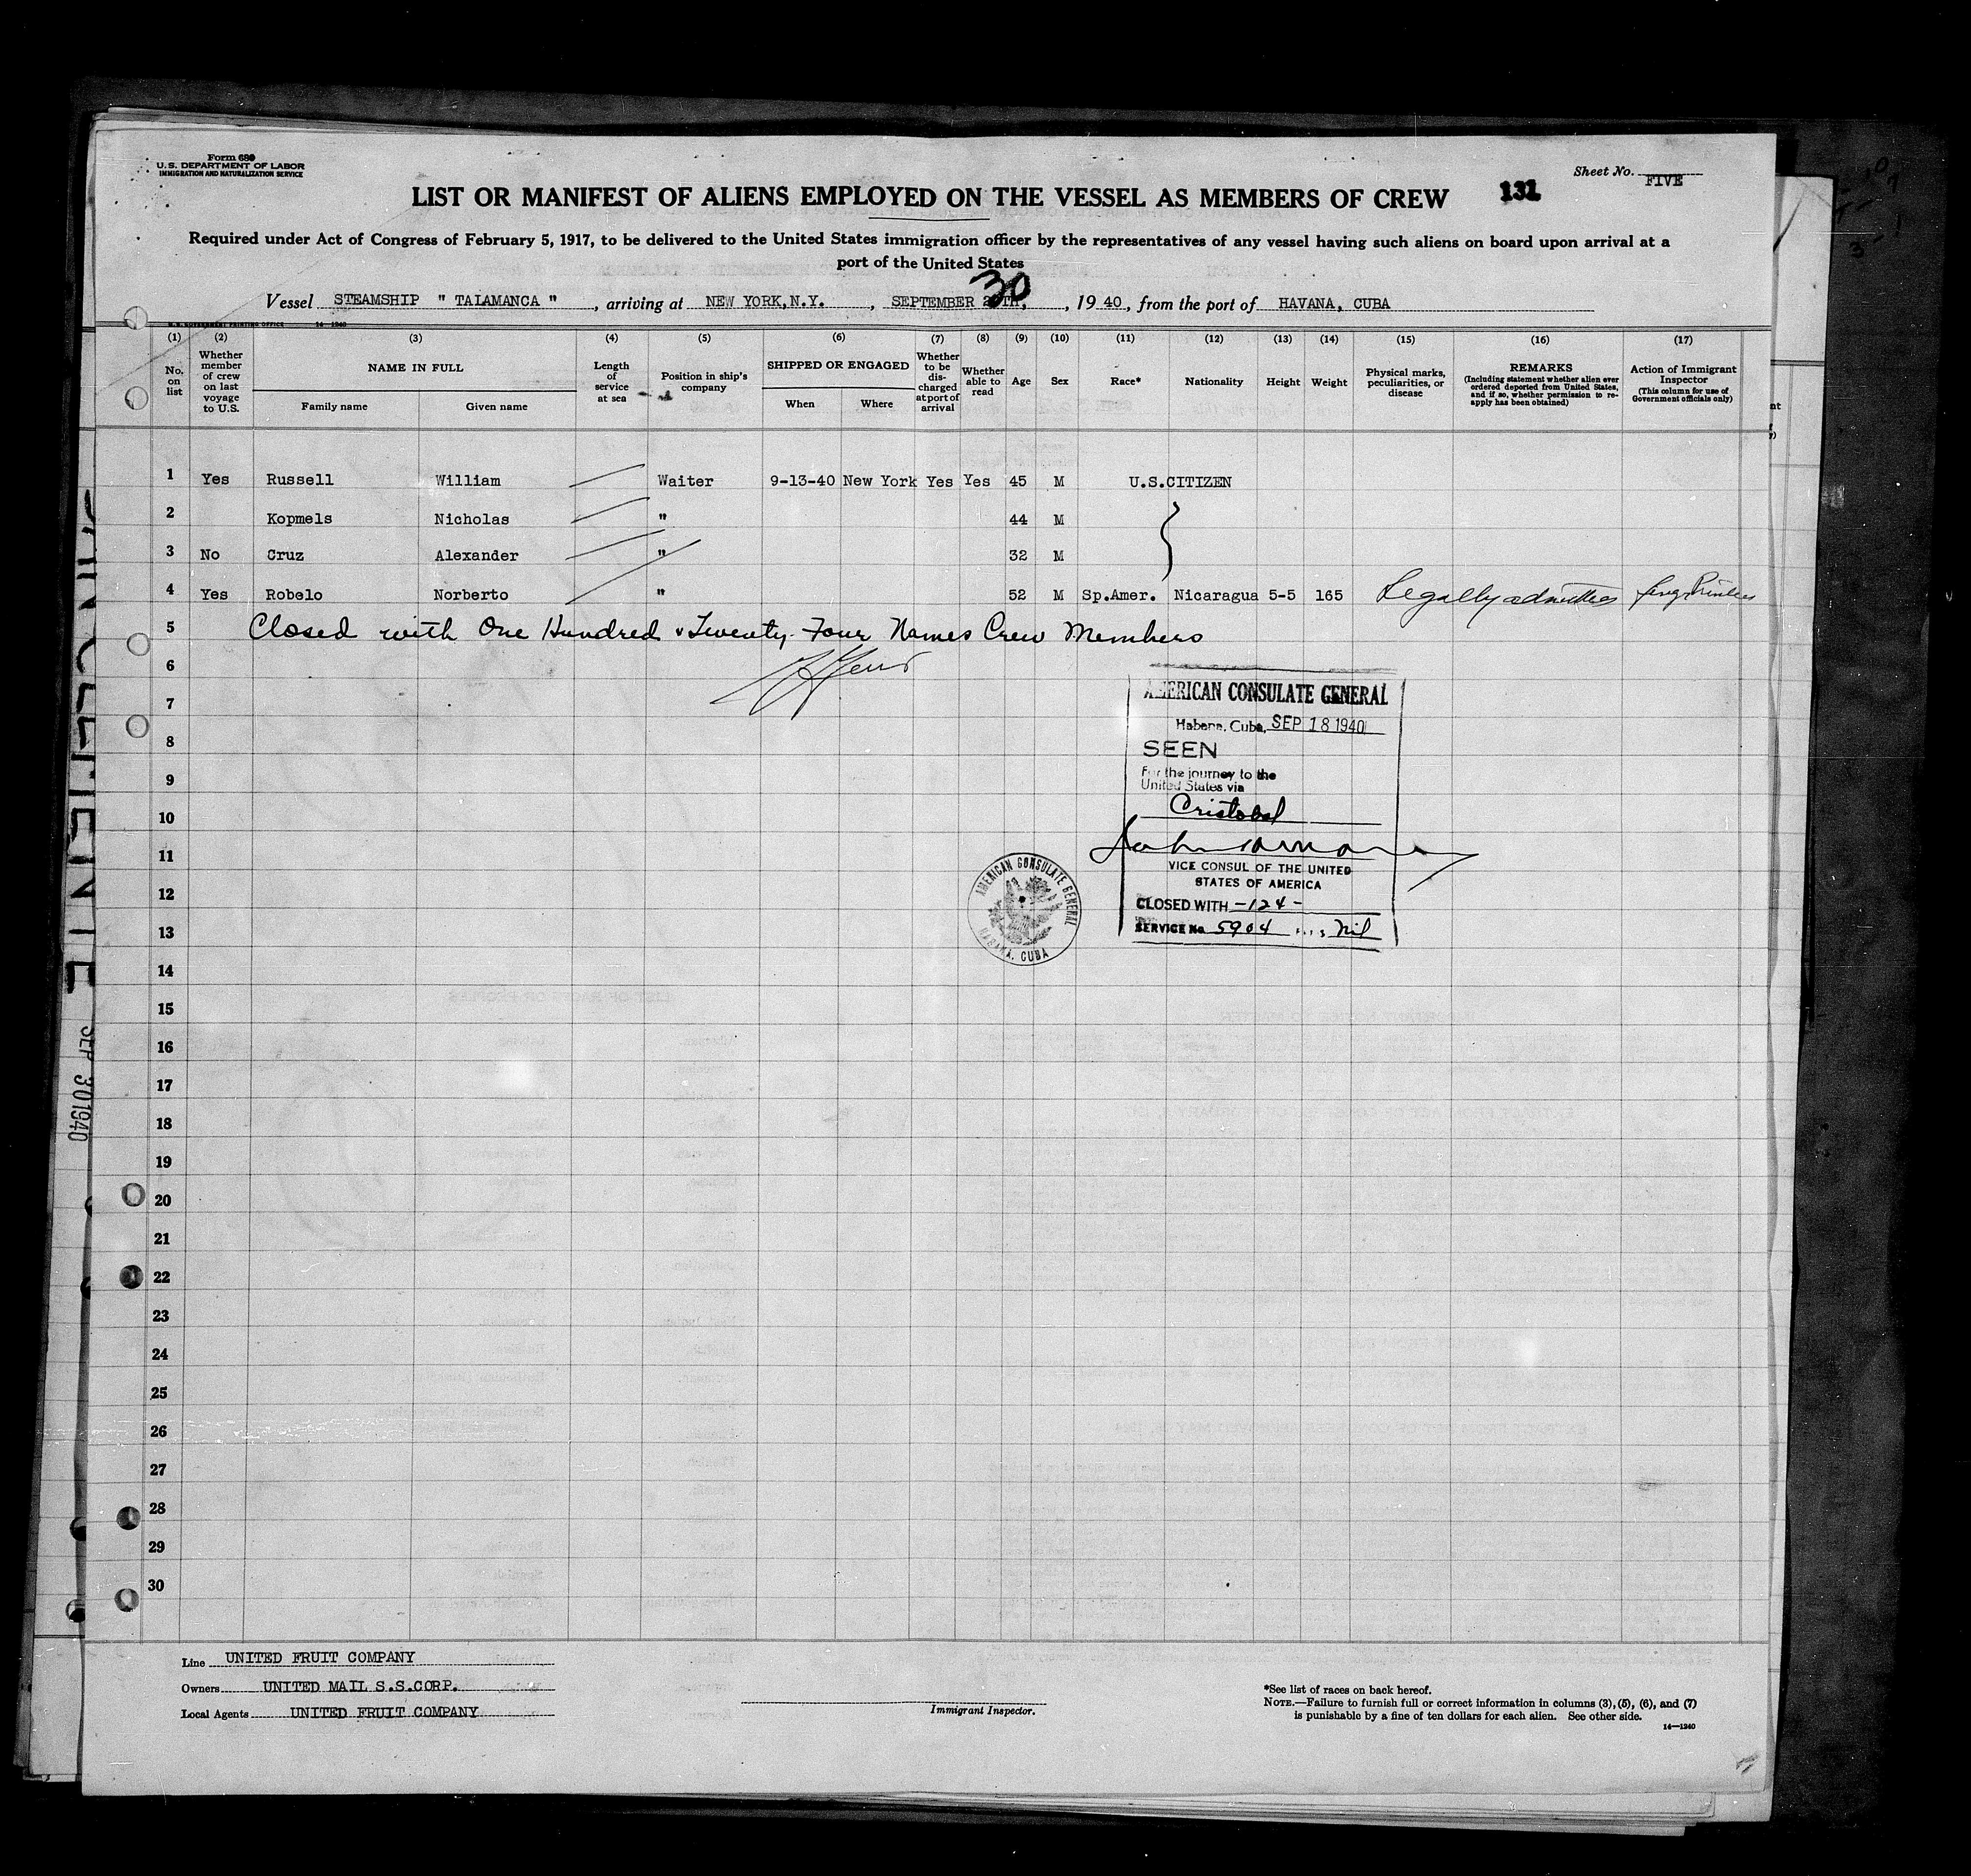 Form 680
U.S. DEPARTMENT OF LABOR
IMMIGRATION AND NATURALIZATION SERVICE
Sheet No. FIVE
LIST OR MANIFEST OF ALIENS EMPLOYED ON THE VESSEL AS MEMBERS OF CREW 131
Required under Act of Congress of February 5, 1917, to be delivered to the United States immigration officer by the representatives of any vessel having such aliens on board upon arrival at a
port of the United States
Vessel STEAMSHIP " TALAMANCA ", arriving at NEW YORK, N.Y., SEPTEMBER 30 TH, 1940, from the port of HAVANA, CUBA
U.S. GOVERNMENT PRINTING OFFICE 14—1240
(1) (2) (3) (4) (5) (6) (7) (8) (9) (10) (11) (12) (13) (14) (15) (16) (17)
No. on list
Whether member of crew on last voyage to U.S.
NAME IN FULL
Family name Given name
Length of service at sea
Position in ship's company
SHIPPED OR ENGAGED
When Where
Whether to be discharged at port of arrival
Whether able to read
Age
Sex
Race*
Nationality
Height
Weight
Physical marks, peculiarities, or disease
REMARKS
(Including statement whether alien ever ordered deported from United States, and if so, whether permission to reapply has been obtained)
Action of Immigrant Inspector
(This column for use of Government officials only)
1 Yes Russell William Waiter 9-13-40 New York Yes Yes 45 M U.S.CITIZEN
2 Kopmels Nicholas " 44 M
3 No Cruz Alexander " 32 M
4 Yes Robelo Norberto " 52 M Sp.Amer. Nicaragua 5-5 165 Legally admitted
5 Closed with One Hundred & Twenty-Four Names Crew Members
6
7
8
9
10
11
12
13
14
15
16
17
18
19
20
21
22
23
24
25
26
27
28
29
30
AMERICAN CONSULATE GENERAL
Habana, Cuba, SEP 18 1940
SEEN
For the journey to the
United States via
Cristobal
VICE CONSUL OF THE UNITED
STATES OF AMERICA
CLOSED WITH -124-
SERVICE No. 5904 nil
AMERICAN CONSULATE GENERAL
HABANA, CUBA
SEP 30 1940
Line UNITED FRUIT COMPANY
Owners UNITED MAIL S.S.CORP.
Local Agents UNITED FRUIT COMPANY
Immigrant Inspector.
*See list of races on back hereof.
NOTE.—Failure to furnish full or correct information in columns (3), (5), (6), and (7)
is punishable by a fine of ten dollars for each alien. See other side.
14—1240